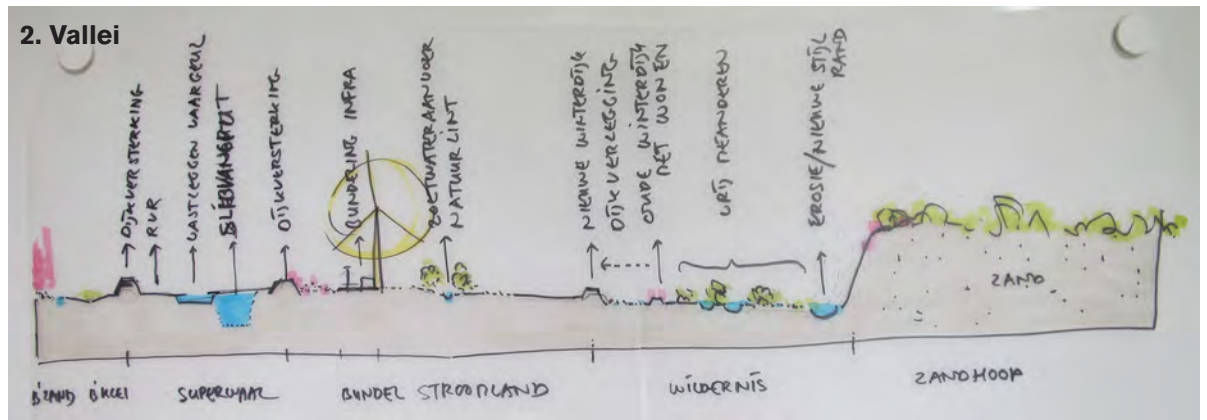 2. Vallei
DIJKVERSTERKING
RVR
VASTLEGGEN VAARGEUL
SLIBVANGPUT
DIJKVERSTERKING
BUNDERING INFRA
ZOETWATERAANVOER
NATUURLINT
NIEUWE WINTERDIJK
DIJKVERLEGGING
OUDE WINTERDIJK
MET WONEN
VRIJ MEANDEREN
EROSIE/NIEUWE STIJL
RAND
ZAND
SUPERWAAL
BUNDEL
STROOMLAND
WILDERNIS
ZANDHOOP